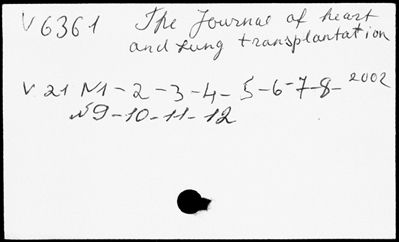 V6361 The Journal of heart
and lung transplantation
V. 21 N1-2-3-4-5-6-7-8- 2002
N9-10-11-12